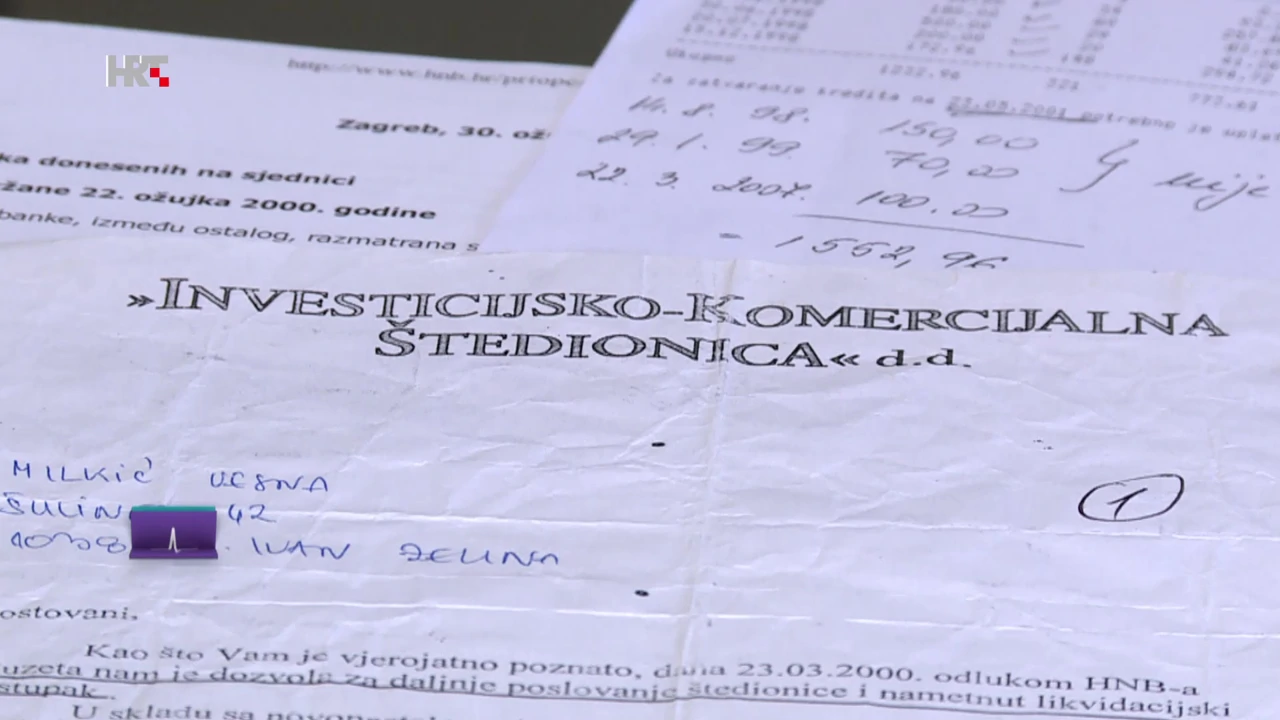 HRT
http://www.hnb.hr/priope
Zagreb, 30. ož
ka donesenih na sjednici
žane 22. ožujka 2000. godine
banke, između ostalog, razmatrana s
172.96
1232.96 221 777.61
za zatvaranje kredita na 23.05.2001 potrebno je uplat
14. 8. 98. 150,00
29. 1. 99. 70,00
22. 3. 2007. 100.00
nije
= 1552,96
»INVESTICIJSKO-KOMERCIJALNA
ŠTEDIONICA« d.d.
1
MILKIĆ VESNA
ŠULIN 42
IVAN ZELINA
oštovani,
Kao što Vam je vjerojatno poznato, dana 23.03.2000. odlukom HNB-a
uzeta nam je dozvola za daljnje poslovanje štedionice i nametnut likvidacijski
stupak.
U skladu sa